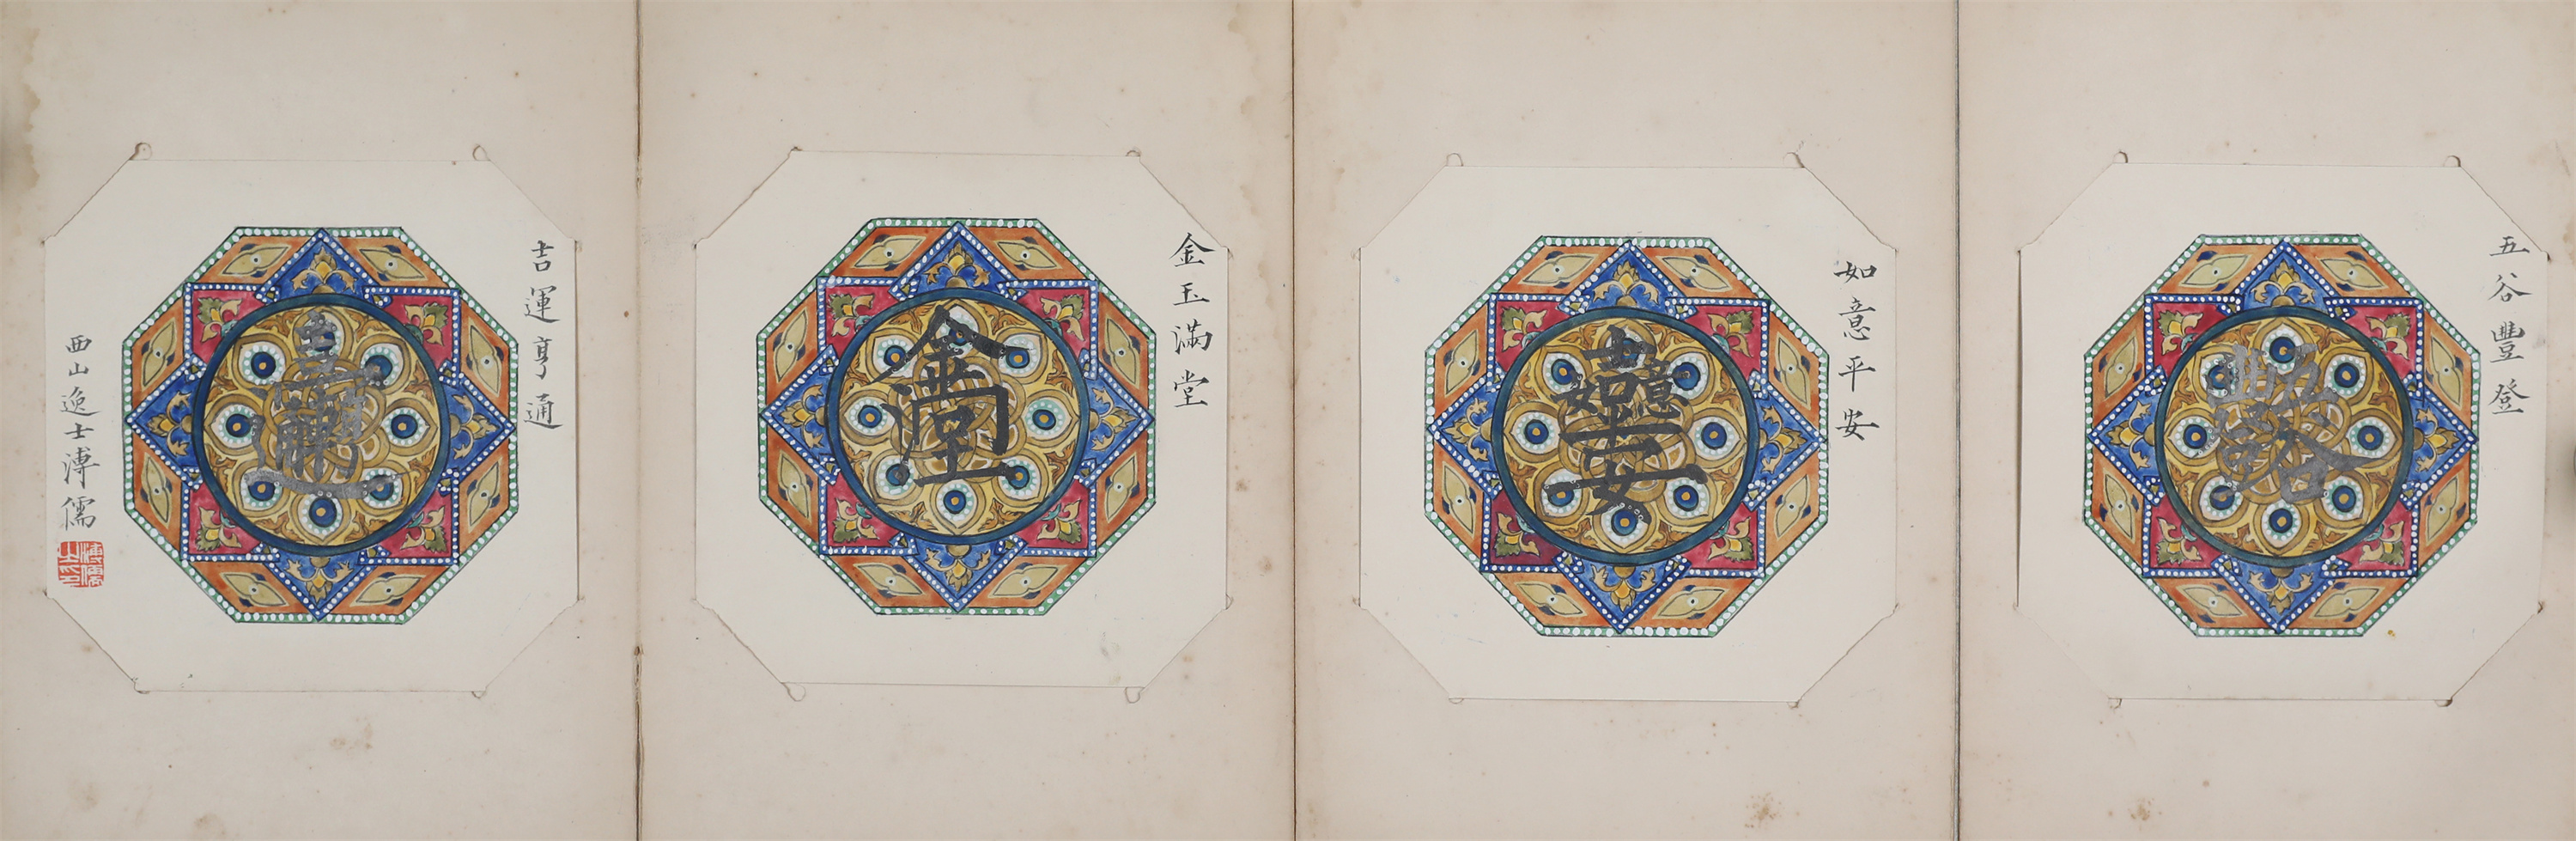 五谷豐登
如意平安
金玉滿堂
吉運亨通
西山逸士溥儒
溥儒之印